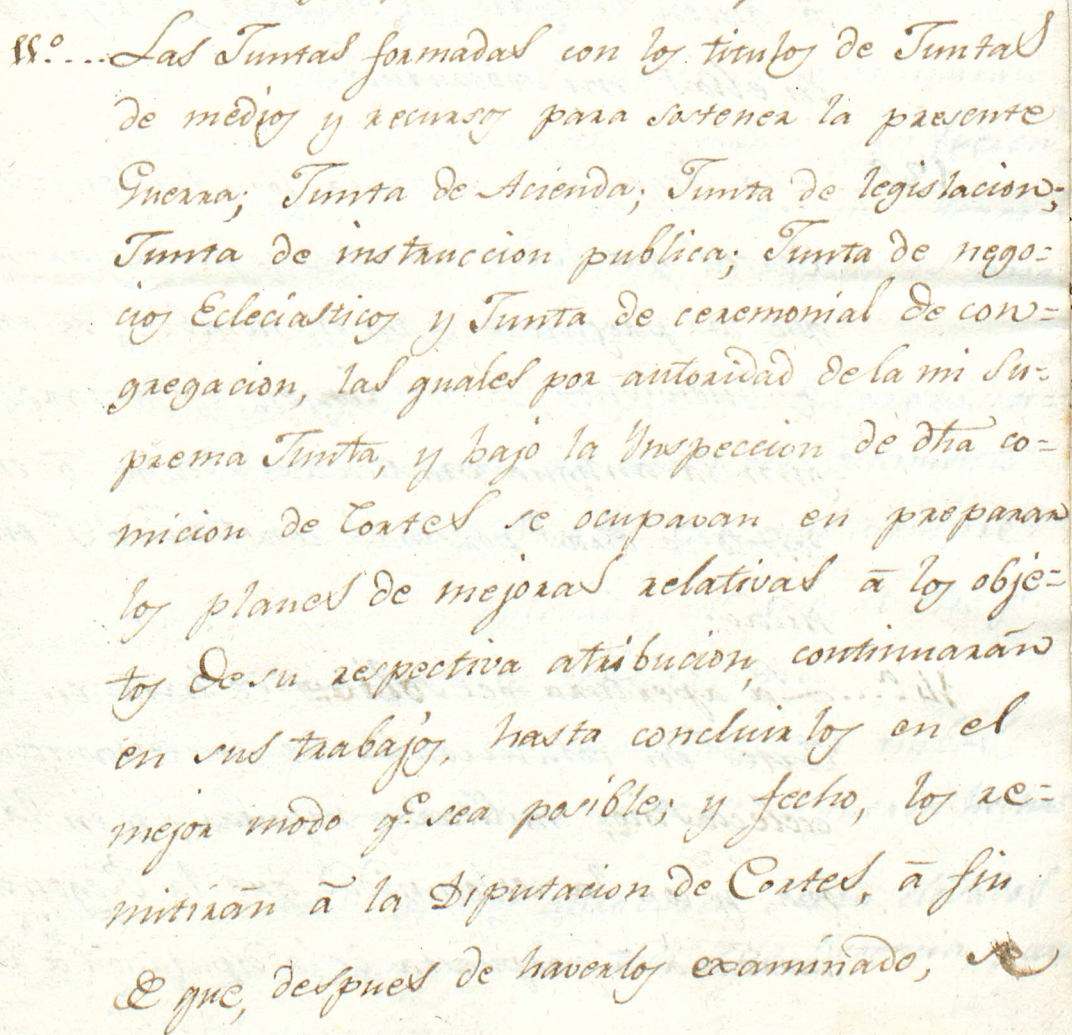 11.º.... Las Juntas formadas con los titulos de Juntas
de medios y recursos para sostener la presente
Guerra; Junta de Acienda; Junta de legislacion;
Junta de instruccion publica; Junta de nego=
cios Ecleciasticos y Junta de ceremonial de con=
gregacion, las quales por autoridad de la mi Su=
prema Junta, y bajo la Ynspeccion de dha co=
micion de Cortes se ocupavan en preparar
los planes de mejoras relativas á los obje=
tos de su respectiva atribucion, continuarán
en sus trabajos, hasta concluirlos en el
mejor modo q.e sea posible; y fecho, los re=
mitirán á la Diputacion de Cortes, á fin
de que, despues de haverlos examinado, se